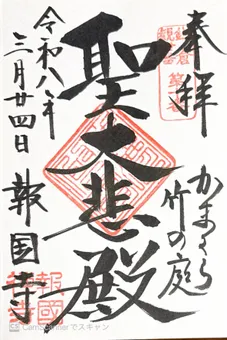 奉拝
かまくら
竹の庭
聖大悲殿
令和八年
三月廿四日
報国寺
報國
CamScannerでスキャン